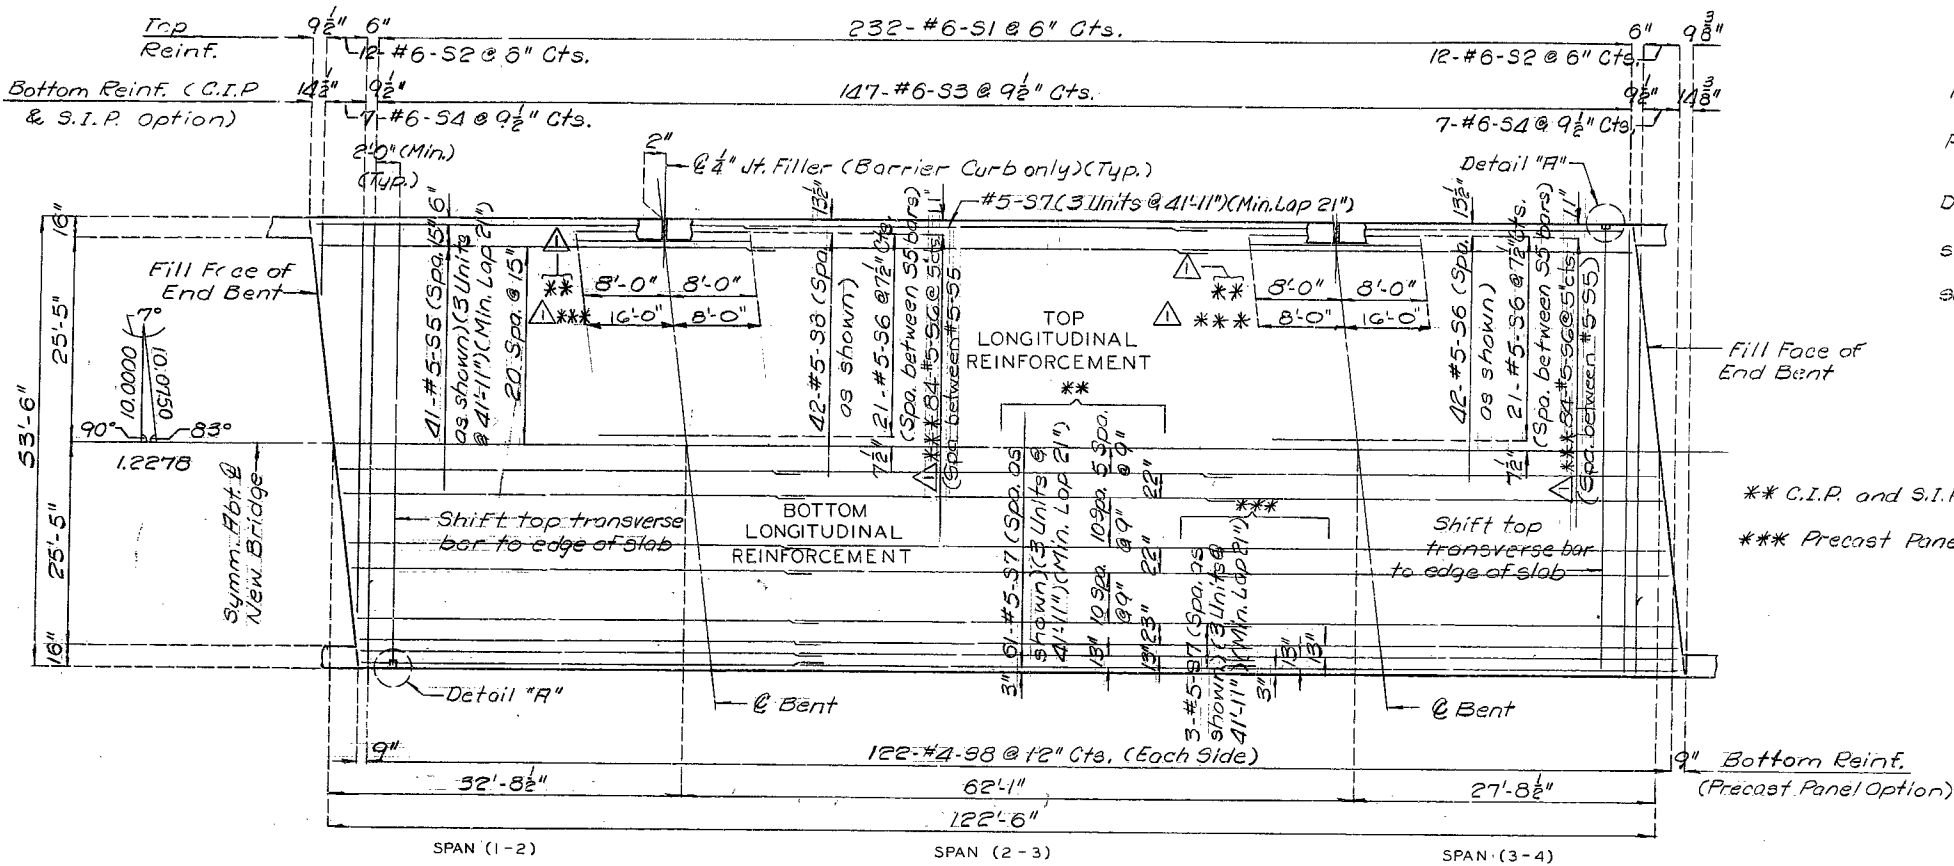 Top
Reinf.
9 1/2" 6"
232-#6-S1 @ 6" Cts.
6" 9 3/8"
12-#6-S2 @ 6" Cts.
12-#6-S2 @ 6" Cts.
Bottom Reinf. (C.I.P
& S.I.P. Option)
14 1/2" 9 1/2"
147-#6-S3 @ 9 1/2" Cts.
9 1/2" 14 3/8"
7-#6-S4 @ 9 1/2" Cts.
7-#6-S4 @ 9 1/2" Cts.
2'-0" (Min.)
(Typ.)
2"
℄ 1/4" Jt. Filler (Barrier Curb only)(Typ.)
#5-S7 (3 Units @ 41'-11")(Min. Lap 21")
Detail "A"
16"
25'-5"
53'-6"
25'-5"
16"
Fill Face of
End Bent
7°
10.0000
10.0750
90°
83°
1.2278
Symm. Abt. ℄
New Bridge
6"
41-#5-S5 (Spa. 15"
as shown)(3 Units
@ 41'-11")(Min. Lap 21")
20 Spa. @ 15"
1
**
8'-0" 8'-0"
1 ***
16'-0" 8'-0"
13 1/2"
42-#5-S8 (Spa.
as shown)
7 1/2" 21-#5-S6 @ 7 1/2" Cts.
(Spa. between S5 bars)
11"
1 *** 84-#5-S6 @ 5" cts.
(Spa. between #5-S5)
TOP
LONGITUDINAL
REINFORCEMENT
1
**
8'-0" 8'-0"
1 ***
8'-0" 16'-0"
13 1/2"
42-#5-S6 (Spa.
as shown)
7 1/2" 21-#5-S6 @ 7 1/2" Cts.
(Spa. between S5 bars)
11"
1 *** 84-#5-S6 @ 5" cts.
(Spa. between #5-S5)
Fill Face of
End Bent
Shift top transverse
bar to edge of slab
BOTTOM
LONGITUDINAL
REINFORCEMENT
**
3" 61-#5-S7 (Spa. as
shown)(3 Units @
41'-11")(Min. Lap 21")
13" 10 Spa. 10 Spa. 5 Spa.
@ 9" @ 9" @ 9"
13" 23" 22" 22"
***
3-#5-S7 (Spa. as
shown)(3 Units @
41'-11")(Min. Lap 21")
3"
13"
13"
Shift top
transverse bar
to edge of slab
** C.I.P. and S.I.P
*** Precast Pane
Detail "A"
℄ Bent
℄ Bent
9"
122-#4-S8 @ 12" Cts. (Each Side)
9" Bottom Reinf.
(Precast Panel Option)
32'-8 1/2"
62'-1"
27'-8 1/2"
122'-6"
SPAN (1-2)
SPAN (2-3)
SPAN (3-4)